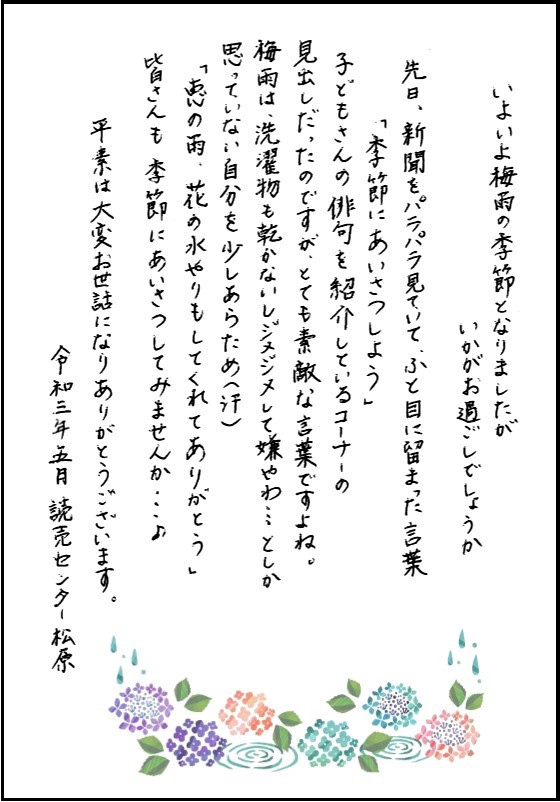 いよいよ梅雨の季節となりましたが
いかがお過ごしでしょうか
先日、新聞をパラパラ見ていて、ふと目に留まった言葉
「季節にあいさつしよう」
子どもさんの俳句を紹介しているコーナーの
見出しだったのですが、とても素敵な言葉ですよね。
梅雨は、洗濯物も乾かないしジメジメして嫌やわ…としか
思っていない自分を少しあらため(汗)
「恵の雨、花の水やりもしてくれてありがとう」
皆さんも季節にあいさつしてみませんか…♪
平素は大変お世話になりありがとうございます。
令和三年五月 読売センター松原